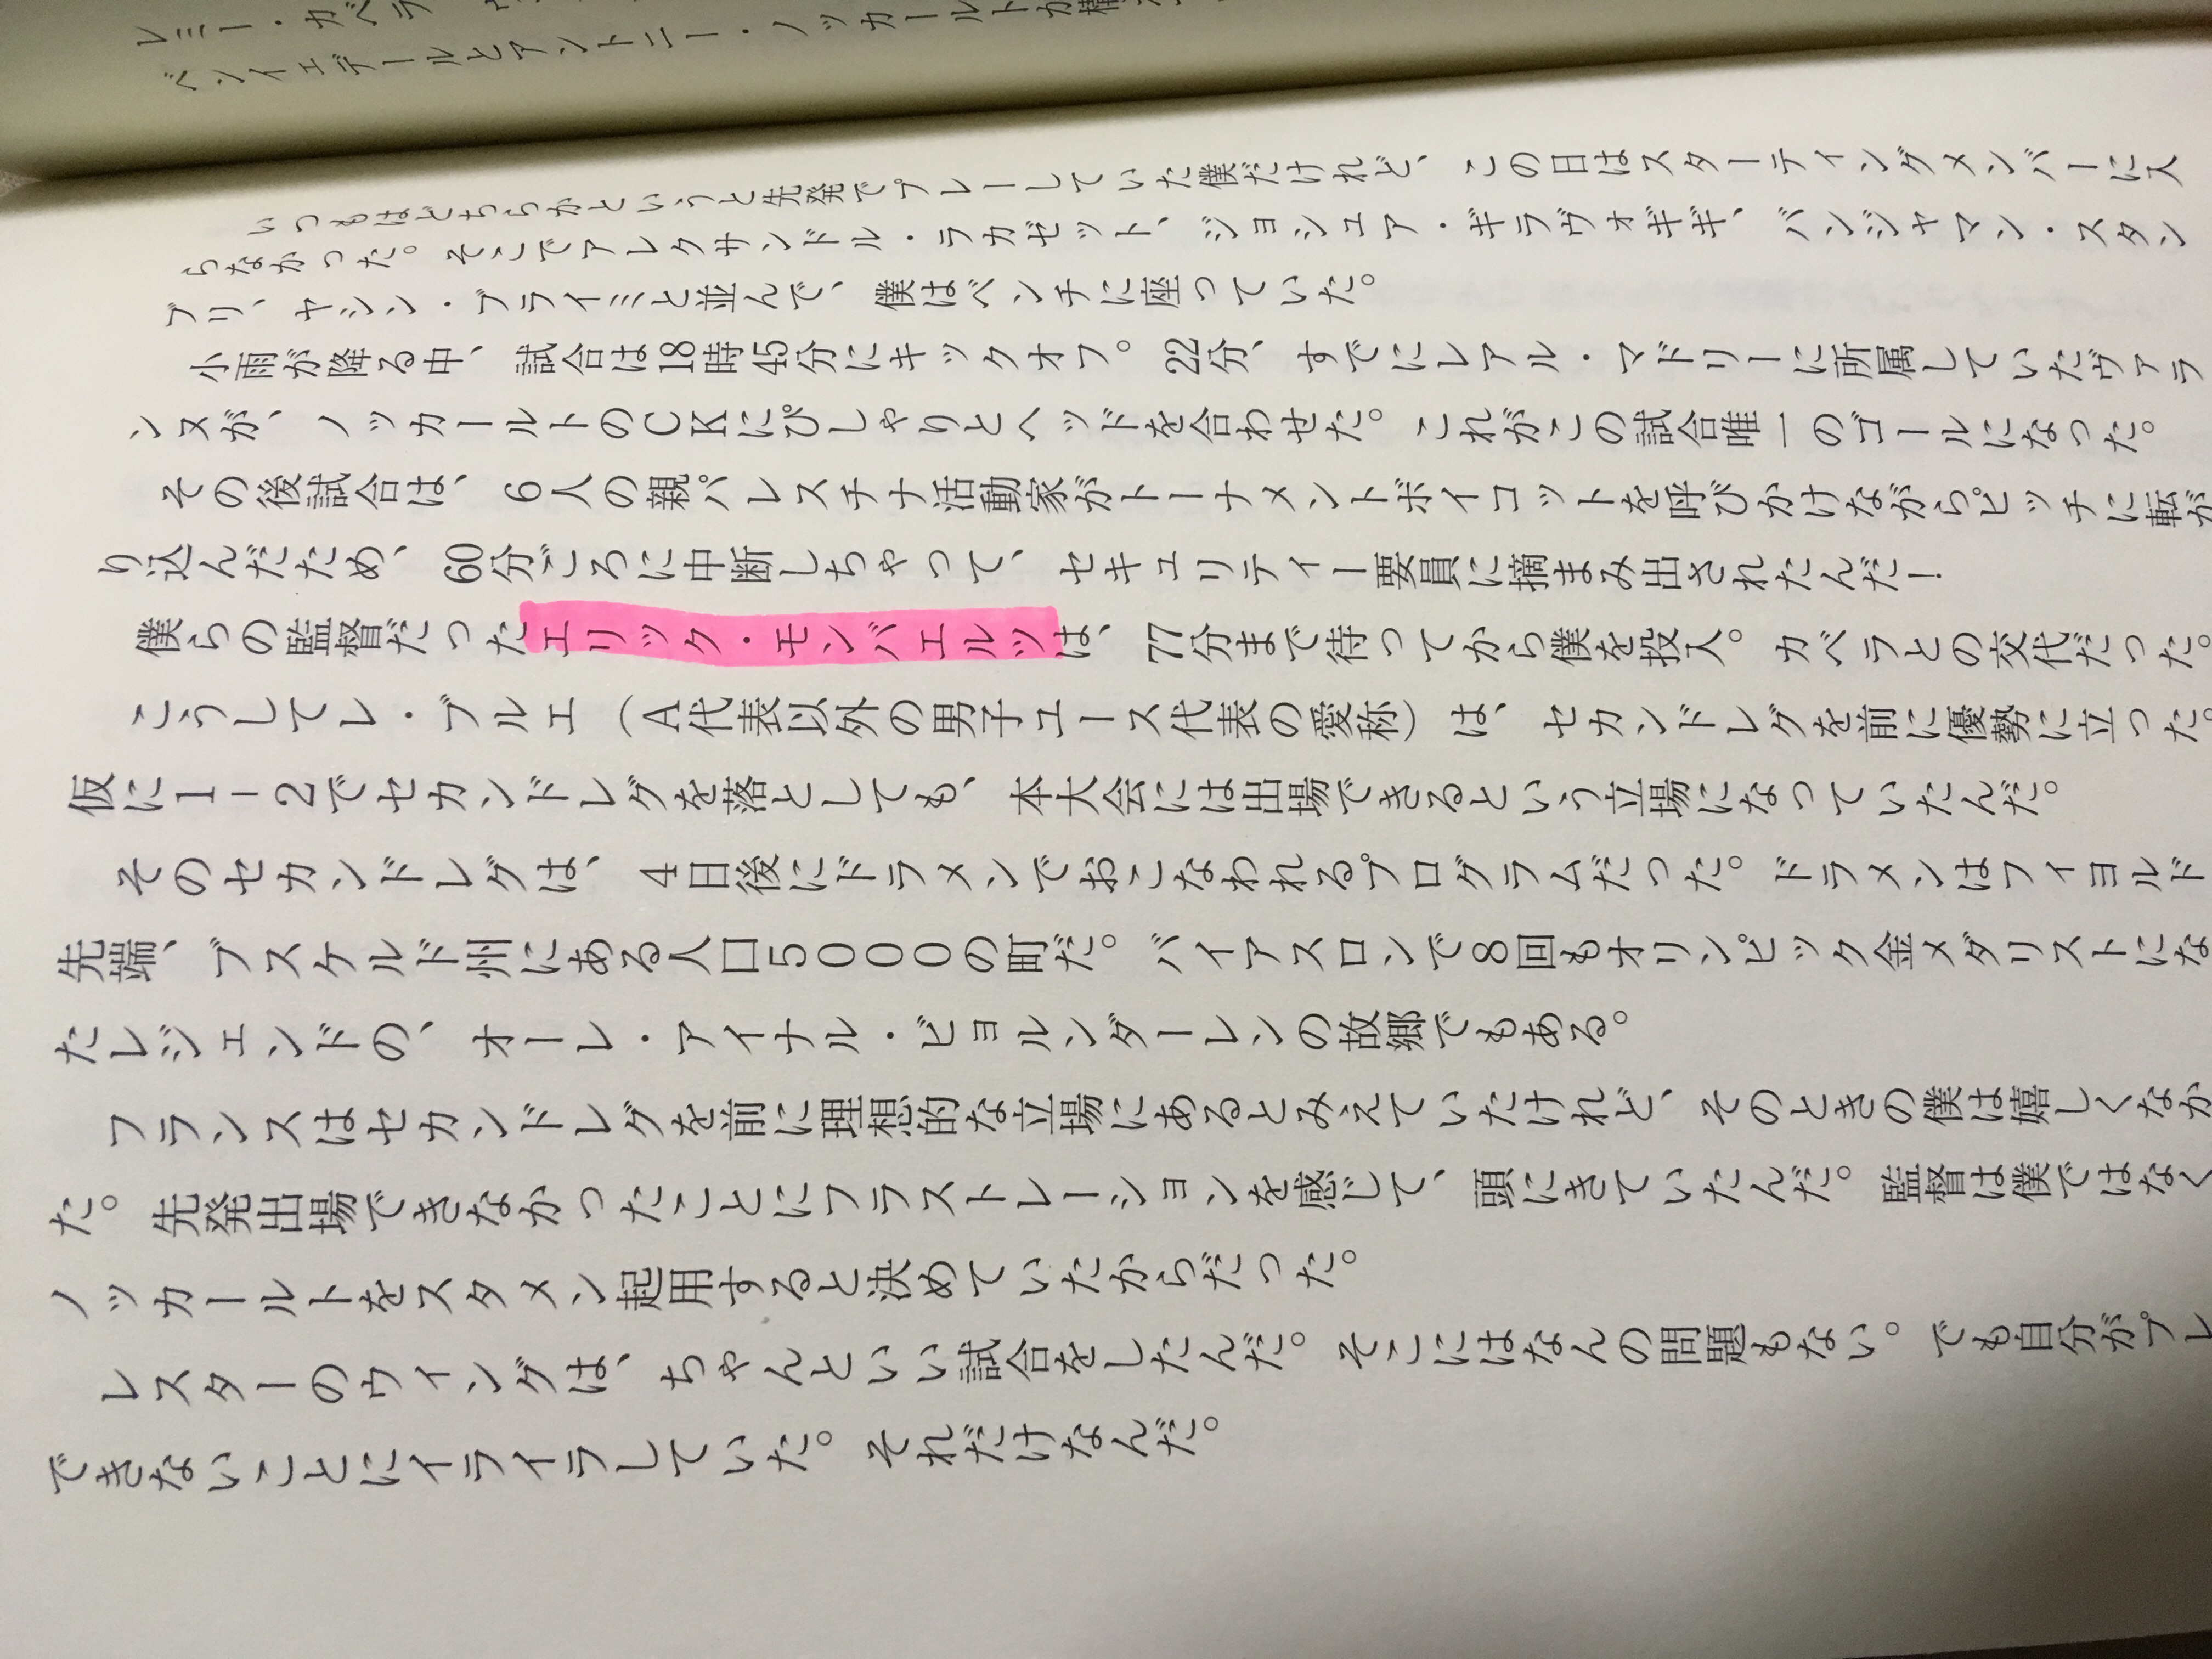 レミー・カベラ
ベンイエデールとアントニー・ノッカールトが
いつもはどちらかというと先発でプレーしていた僕だけれど、この日はスターティングメンバーに入
らなかった。そこでアレクサンドル・ラカゼット、ジョシュア・ギラヴォギギ、バンジャマン・スタン
ブリ、ヤシン・ブライミと並んで、僕はベンチに座っていた。
小雨が降る中、試合は18時45分にキックオフ。22分、すでにレアル・マドリーに所属していたヴァラ
ンヌが、ノッカールトのCKにぴしゃりとヘッドを合わせた。これがこの試合唯一のゴールになった。
その後試合は、6人の親パレスチナ活動家がトーナメントボイコットを呼びかけながらピッチに転が
り込んだため、60分ごろに中断しちゃって、セキュリティー要員に摘まみ出されたんだ!
僕らの監督だったエリック・モンバエルツは、77分まで待ってから僕を投入。カベラとの交代だった。
こうしてレ・ブルエ(A代表以外の男子ユース代表の愛称)は、セカンドレグを前に優勢に立った。
仮に1-2でセカンドレグを落としても、本大会には出場できるという立場になっていたんだ。
そのセカンドレグは、4日後にドラメンでおこなわれるプログラムだった。ドラメンはフィヨルド
先端、ブスケルド州にある人口5000の町だ。バイアスロンで8回もオリンピック金メダリストにな
たレジェンドの、オーレ・アイナル・ビョルンダーレンの故郷でもある。
フランスはセカンドレグを前に理想的な立場にあるとみえていたけれど、そのときの僕は嬉しくなか
た。先発出場できなかったことにフラストレーションを感じて、頭にきていたんだ。監督は僕ではなく
ノッカールトをスタメン起用すると決めていたからだった。
レスターのウイングは、ちゃんといい試合をしたんだ。そこにはなんの問題もない。でも自分がプレ
できないことにイライラしていた。それだけなんだ。